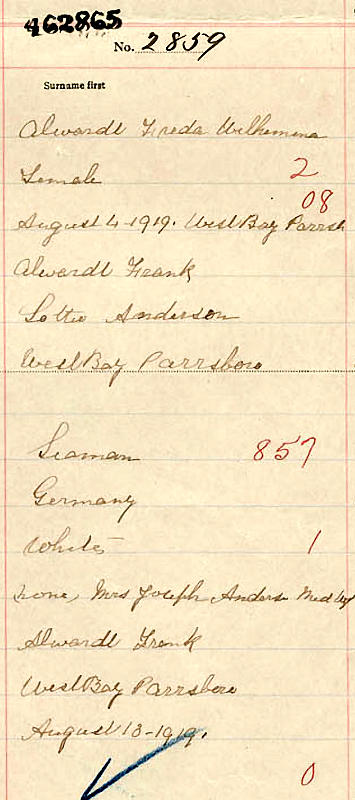 462865
No. 2859
Surname first
Alwardt Freda Wilhemina
Female 2
08
August 4-1919. West Bay Parrsb
Alwardt Frank
Lottie Anderson
West Bay Parrsboro
Seaman 857
Germany
White 1
none, Mrs Joseph Anderso
Alwardt Frank
West Bay Parrsboro
August 13-1919.
0